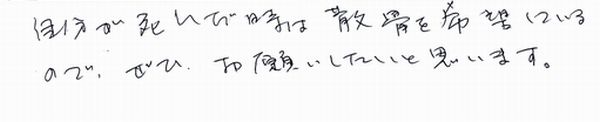 自分が死んだ時は散骨を希望している
ので、ぜひ、お願いしたいと思います。